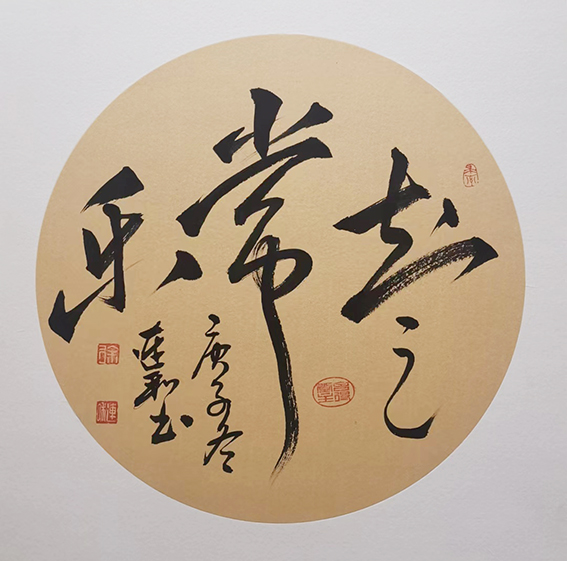 知足
常
乐
庚子冬
和书